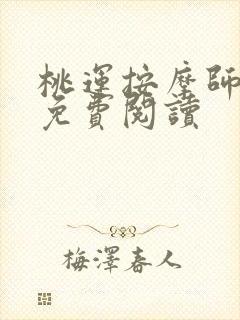 桃運按摩師
免費閱讀
梅澤春人